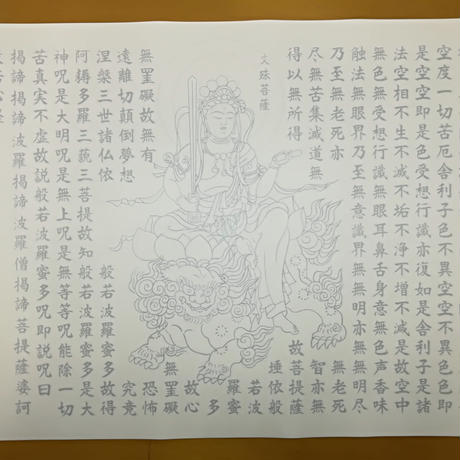 空度一切苦厄舎利子色不異空空不異色色即
是空空即是色受想行識亦復如是舎利子是諸
法空相不生不滅不垢不浄不増不減是故空中
無色無受想行識無眼耳鼻舌身意無色声香味
触法無眼界乃至無意識界無無明亦無無明尽
乃至無老死亦
無老死
尽無苦集滅道無
智亦無
得以無所得
故菩提薩
文殊菩薩
埵依般
若波
羅蜜
多
故心
無罣礙
無罣礙故無有
恐怖
遠離切顛倒夢想
究竟
涅槃三世諸仏依
般若波羅蜜多故得
阿耨多羅三藐三菩提故知般若波羅蜜多是大
神呪是大明呪是無上呪是無等等呪能除一切
苦真実不虚故説般若波羅蜜多呪即説呪曰
掲諦掲諦波羅掲諦波羅僧掲諦菩提薩婆訶